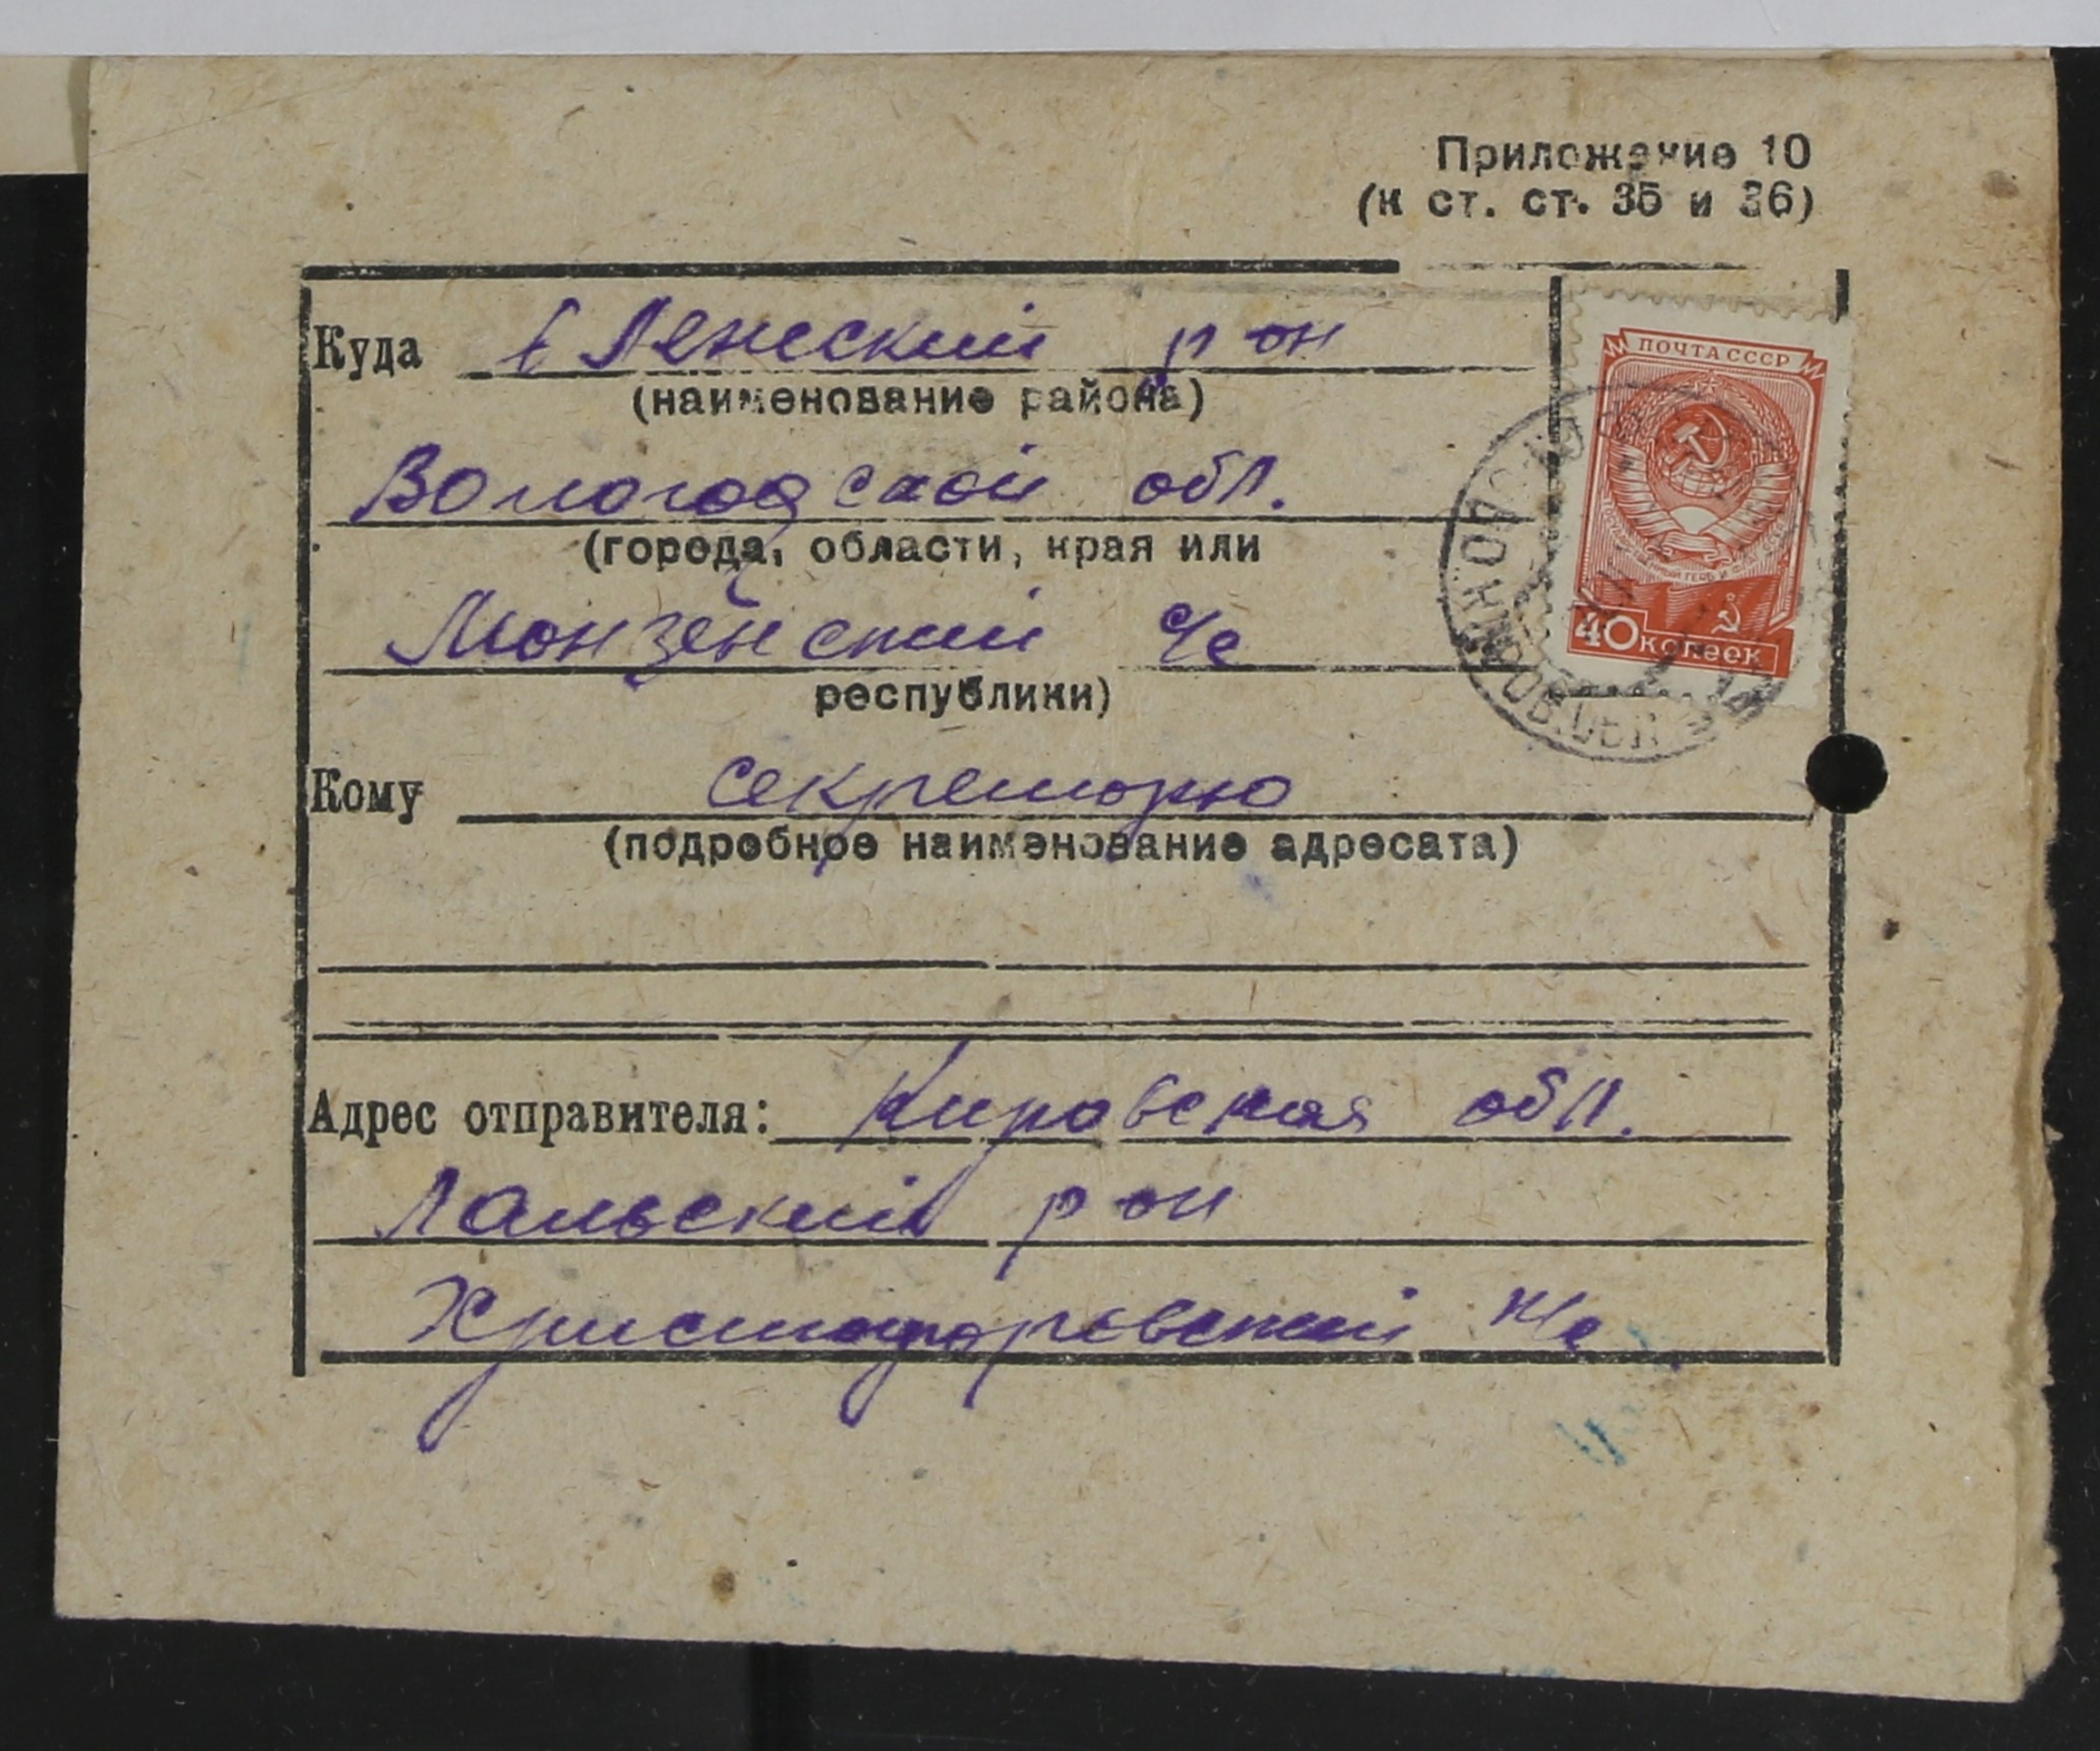 Приложение 10
(к ст. ст. 35 и 36)
ПОЧТА СССР
40 копеек
Куда Ленский р он
(наименование района)
Вологодской обл.
(города, области, края или
Монзенский с/с
республики)
Кому секреторю
(подробное наименование адресата)
Адрес отправителя: Кировская обл.
Лальский р он
Христофоровский н/с